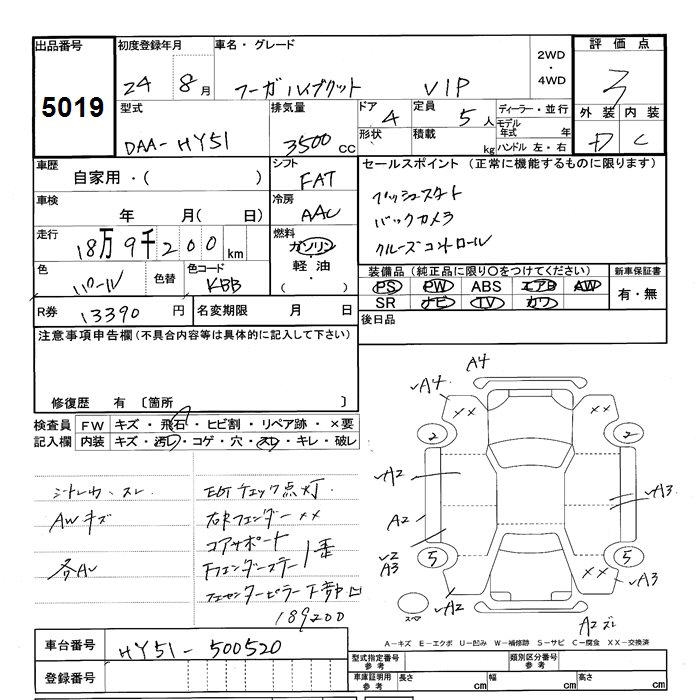 出品番号 5019
初度登録年月 24 8月
車名・グレード フーガハイブリット VIP
2WD・4WD
評価点 3
外装 内装
D C
型式 DAA-HY51
排気量 3500cc
ドア 4 形状
定員 5人 積載 kg
ディーラー・並行
モデル年式 年
ハンドル 左・右
車歴 自家用・( )
シフト FAT
セールスポイント (正常に機能するものに限ります)
プッシュスタート
バックカメラ
クルーズコントロール
車検 年 月( 日)
冷房 AAC
走行 18万9千200km
燃料 ガソリン・軽油・( )
色 パール 色替
色コード KBB
装備品 (純正品に限り○をつけてください)
新車保証書
PS PW ABS エアB AW
有・無
SR ナビ TV カワ
R券 13390円
名変期限 月 日
後日品
注意事項申告欄(不具合内容等は具体的に記入して下さい)
修復歴 有 〔箇所 〕
検査員記入欄
FW キズ・飛石・ヒビ割・リペア跡・×要
内装 キズ・汚レ・コゲ・穴・スレ・キレ・破レ
シートレカ、スレ
EGチェック点灯
AWキズ
右Rフェンダー××
コアサポート
各AU
Fフェンダーステー1番
189200
A4
A4
××
××
2
2
A2
A2
A3
A2
A3
5
5
××
A3
A2
スペア
A2ズレ
A-キズ E-エクボ U-凹み W-補修跡 S-サビ C-腐食 XX-交換済
車台番号 HY51-500520
登録番号
型式指定番号 参考
類別区分番号 参考
車庫証明用 参考
長さ cm
幅 cm
高さ cm